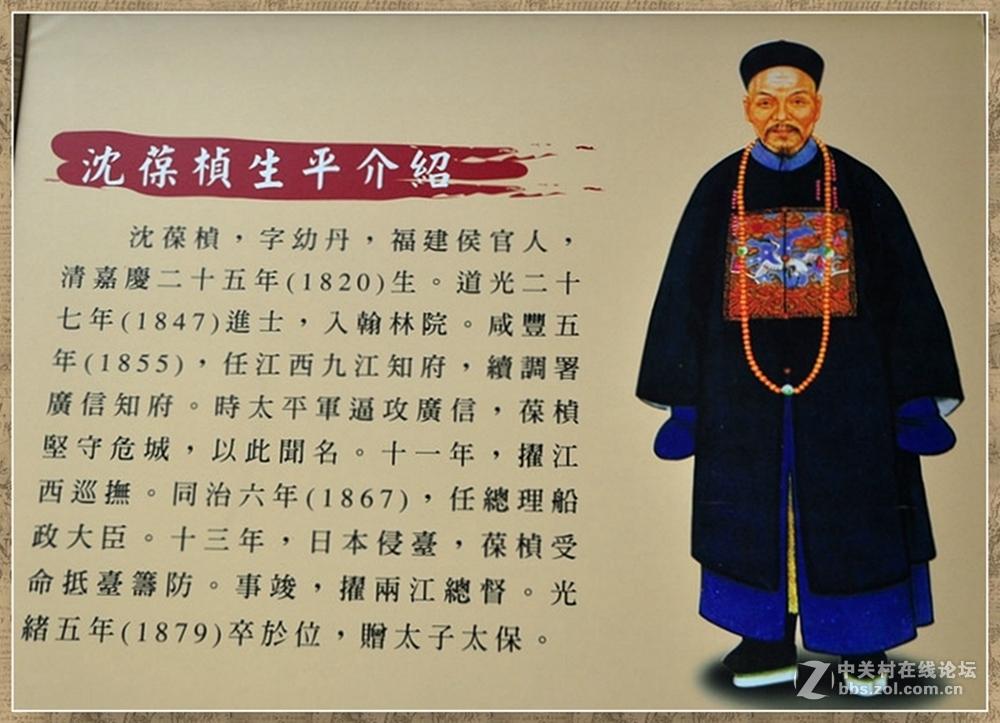 沈葆楨生平介紹
沈葆楨，字幼丹，福建侯官人，
清嘉慶二十五年(1820)生。道光二十
七年(1847)進士，入翰林院。咸豐五
年(1855)，任江西九江知府，續調署
廣信知府。時太平軍逼攻廣信，葆楨
堅守危城，以此聞名。十一年，擢江
西巡撫。同治六年(1867)，任總理船
政大臣。十三年，日本侵臺，葆楨受
命抵臺籌防。事竣，擢兩江總督。光
緒五年(1879)卒於位，贈太子太保。
中关村在线论坛
bbs.zol.com.cn